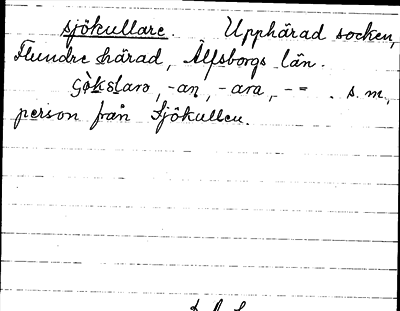 sjökullare. Upphärad socken,
Flundre härad, Älfsborgs län.
-aṇ, -ara, -= . s. m.,
person från Sjökullen.